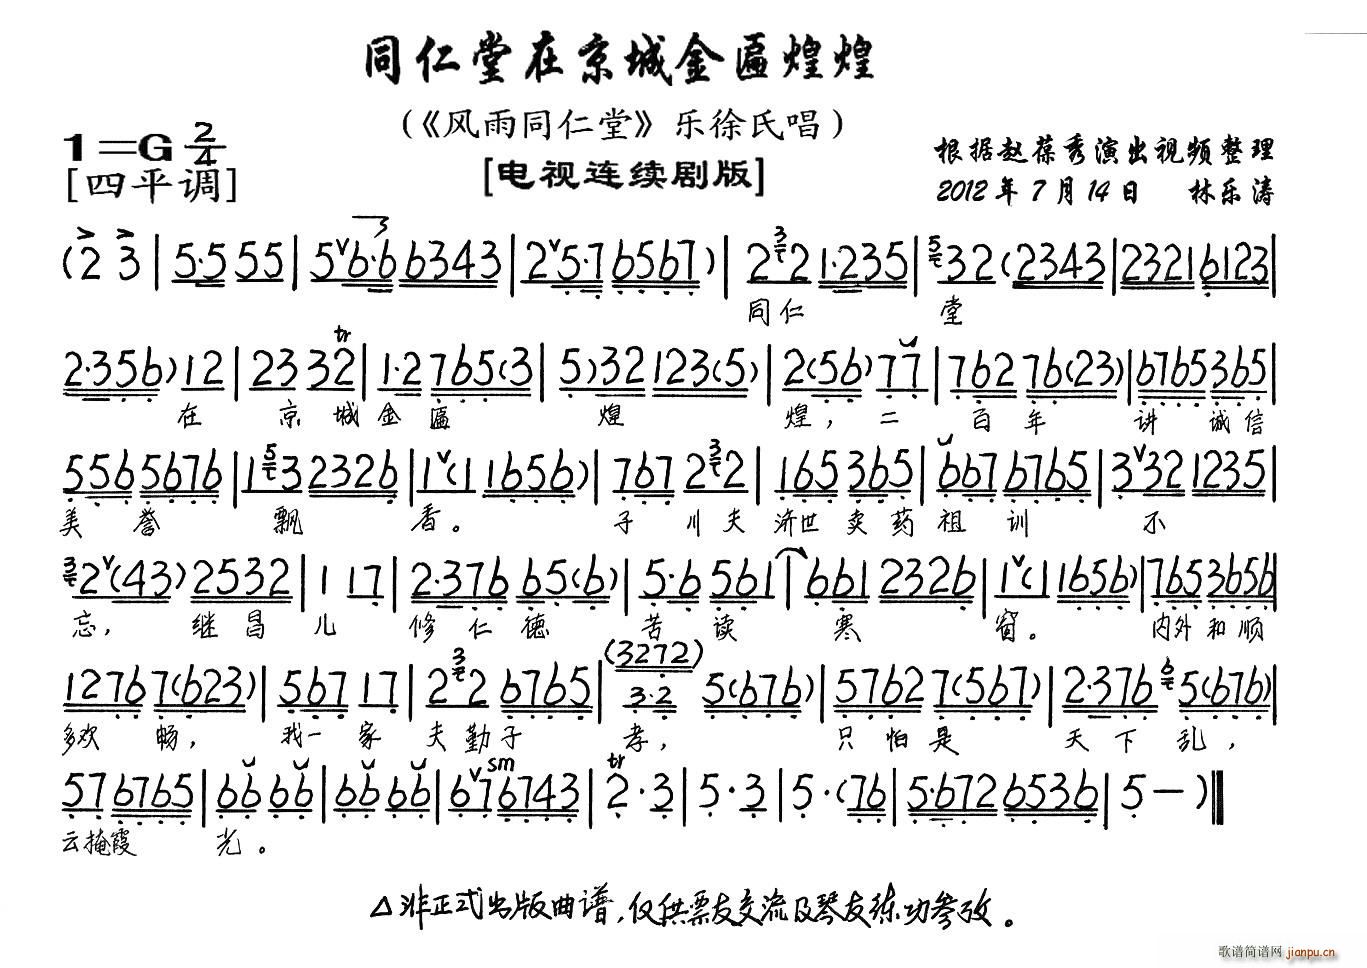 同仁堂在京城金匾煌煌
(《风雨同仁堂》乐徐氏唱)
1=G 2/4
[四平调]
[电视连续剧版]
根据赵葆秀演出视频整理
2012年7月14日 林乐涛
(2 3 | 5·5 55 | 5 6·6 6343 | 2 5·7 6567) | 2 3 2 1·235 | 5 32 (2343 | 2321 6123 |
同仁 堂
2·356) 12 | 23 32 | 1·2 765(3 | 5)32 123(5) | 2(56) 77 | 762 76(23) | 6765 365 |
tr
在 京 城 金 匾 煌 煌, 二 百 年 讲 诚信
556 5676 | 1 5 3 2326 | 1(1 1656) | 767 2 3 2 | 165 365 | 667 6765 | 3 32 1235 |
美 誉 飘 香。 子 川 夫 济世 卖 药 祖 训 不
3 2(43) 2532 | 1 17 | 2·376 65(6) | 5·6 561 | 661 2326 | 1(1 1656) | 765 3656 |
忘, 继 昌 儿 修 仁 德 苦 读 寒 窗。 内外 和 顺
1276 7(623) | 567 17 | 2 3 2 6765 | (3272) 3·2 5(676) | 5762 7(567) | 2·376 6 5(676) |
多欢 畅, 我一 家 夫 勤 子 孝, 只 怕 是 天 下 乱,
57 6765 | 66 66 | 66 66 | 67 6743 | 2·3 | 5·3 | 5·(76 | 5·672 6536 | 5 — ) ‖
sm tr
云掩霞 光。
△非正式出版曲谱,仅供票友交流及琴友练功参考。
歌谱简谱网 jianpu.cn